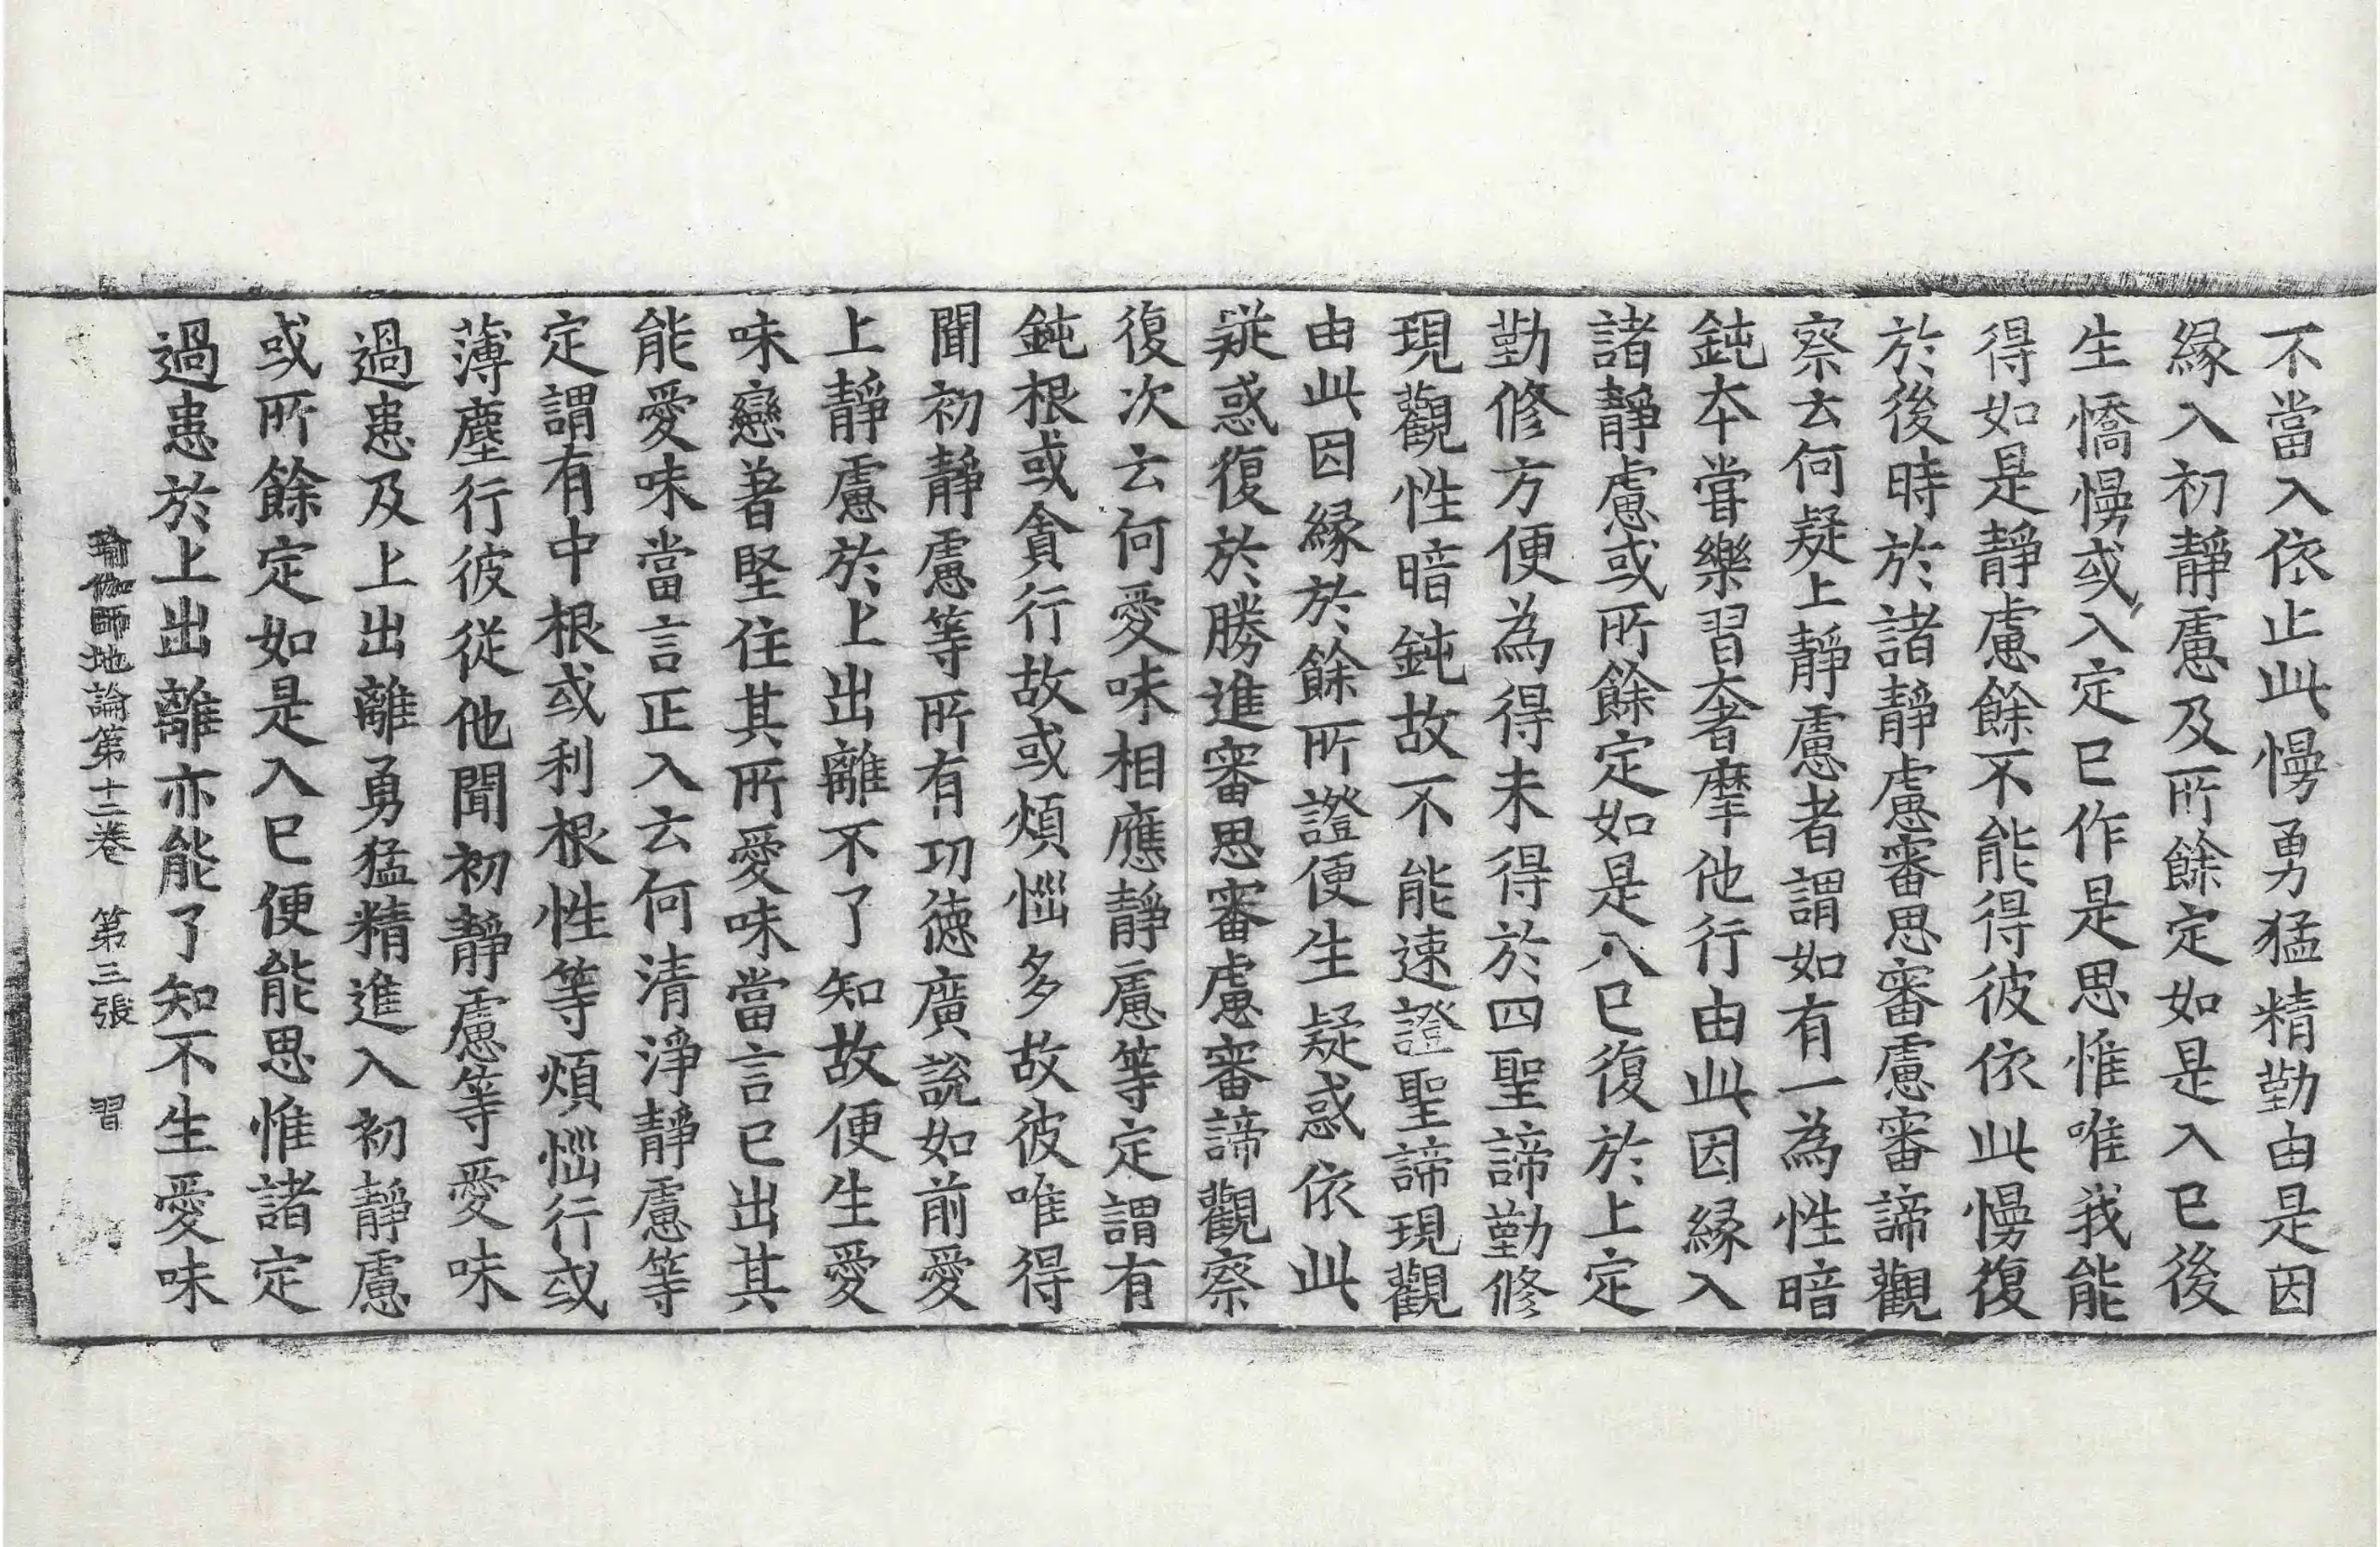 不當入依止此慢勇猛精勤由是因
緣入初靜慮及所餘定如是入已後
生憍慢或入定已作是思惟唯我能
得如是靜慮餘不能得彼依此慢復
於後時於諸靜慮審思審慮審諦觀
察云何疑上靜慮者謂如有一為性暗
鈍本甞樂習奢摩他行由此因緣入
諸靜慮或所餘定如是入已復於上定
勤修方便為得未得於四聖諦勤修
現觀性暗鈍故不能速證聖諦現觀
由此因緣於餘所證便生疑惑依此
疑惑復於勝進審思審慮審諦觀察
復次云何愛味相應靜慮等定謂有
鈍根或貪行故或煩惱多故彼唯得
聞初靜慮等所有功德廣說如前愛
上靜慮於上出離不了知故便生愛
味戀著堅住其所愛味當言已出其
能愛味當言正入云何清淨靜慮等
定謂有中根或利根性等煩惱行或
薄塵行彼從他聞初靜慮等愛味
過患及上出離勇猛精進入初靜慮
或所餘定如是入已便能思惟諸定
過患於上出離亦能了知不生愛味
瑜伽師地論第十二卷　第三張　習